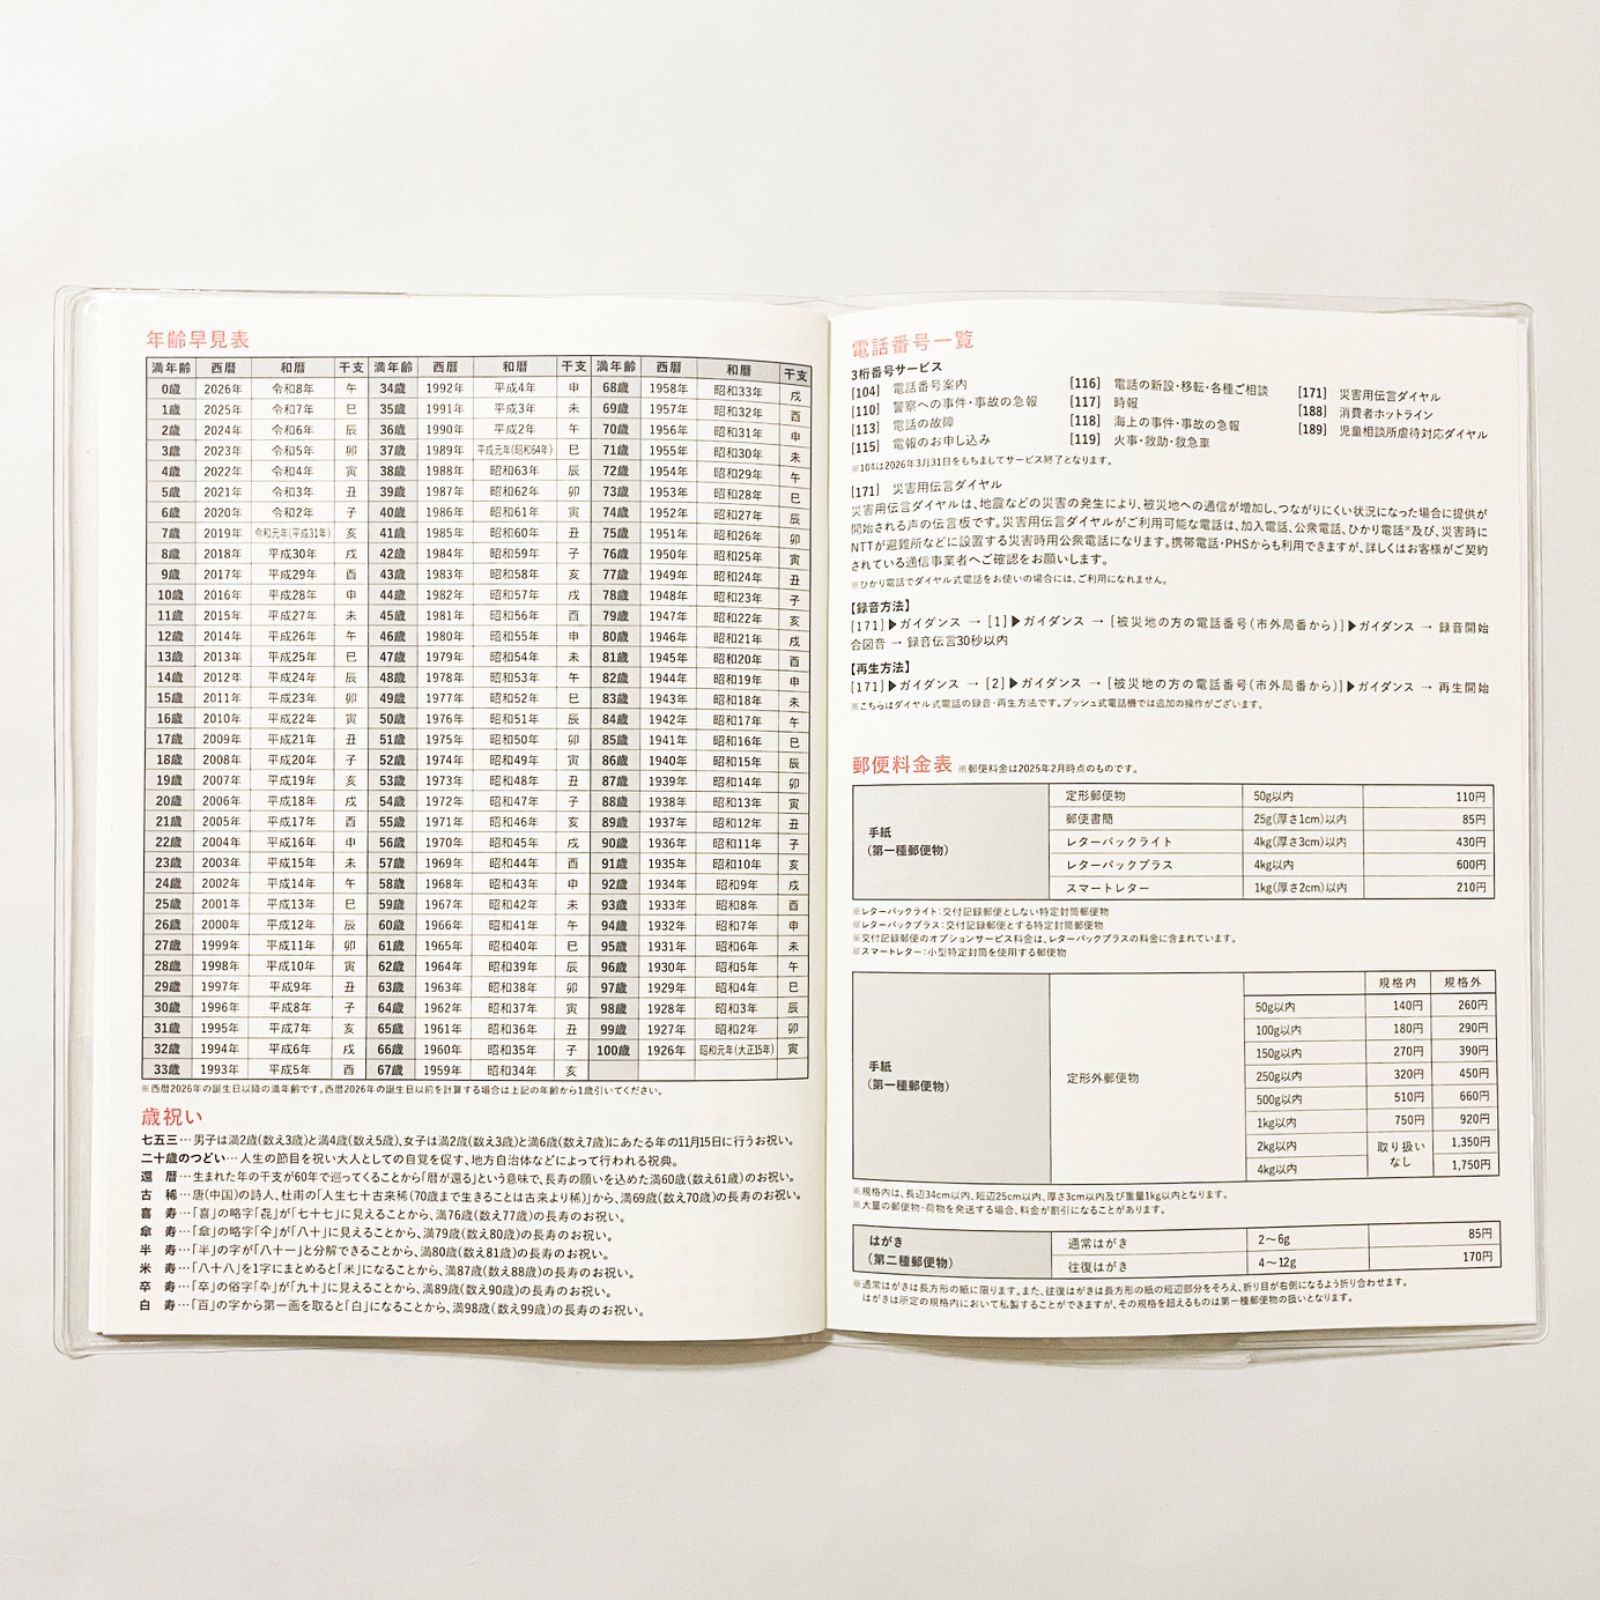 年齢早見表
満年齢 西暦 和暦 干支 満年齢 西暦 和暦 干支 満年齢 西暦 和暦 干支
0歳 2026年 令和8年 午 34歳 1992年 平成4年 申 68歳 1958年 昭和33年 戌
1歳 2025年 令和7年 巳 35歳 1991年 平成3年 未 69歳 1957年 昭和32年 酉
2歳 2024年 令和6年 辰 36歳 1990年 平成2年 午 70歳 1956年 昭和31年 申
3歳 2023年 令和5年 卯 37歳 1989年 平成元年(昭和64年) 巳 71歳 1955年 昭和30年 未
4歳 2022年 令和4年 寅 38歳 1988年 昭和63年 辰 72歳 1954年 昭和29年 午
5歳 2021年 令和3年 丑 39歳 1987年 昭和62年 卯 73歳 1953年 昭和28年 巳
6歳 2020年 令和2年 子 40歳 1986年 昭和61年 寅 74歳 1952年 昭和27年 辰
7歳 2019年 令和元年(平成31年) 亥 41歳 1985年 昭和60年 丑 75歳 1951年 昭和26年 卯
8歳 2018年 平成30年 戌 42歳 1984年 昭和59年 子 76歳 1950年 昭和25年 寅
9歳 2017年 平成29年 酉 43歳 1983年 昭和58年 亥 77歳 1949年 昭和24年 丑
10歳 2016年 平成28年 申 44歳 1982年 昭和57年 戌 78歳 1948年 昭和23年 子
11歳 2015年 平成27年 未 45歳 1981年 昭和56年 酉 79歳 1947年 昭和22年 亥
12歳 2014年 平成26年 午 46歳 1980年 昭和55年 申 80歳 1946年 昭和21年 戌
13歳 2013年 平成25年 巳 47歳 1979年 昭和54年 未 81歳 1945年 昭和20年 酉
14歳 2012年 平成24年 辰 48歳 1978年 昭和53年 午 82歳 1944年 昭和19年 申
15歳 2011年 平成23年 卯 49歳 1977年 昭和52年 巳 83歳 1943年 昭和18年 未
16歳 2010年 平成22年 寅 50歳 1976年 昭和51年 辰 84歳 1942年 昭和17年 午
17歳 2009年 平成21年 丑 51歳 1975年 昭和50年 卯 85歳 1941年 昭和16年 巳
18歳 2008年 平成20年 子 52歳 1974年 昭和49年 寅 86歳 1940年 昭和15年 辰
19歳 2007年 平成19年 亥 53歳 1973年 昭和48年 丑 87歳 1939年 昭和14年 卯
20歳 2006年 平成18年 戌 54歳 1972年 昭和47年 子 88歳 1938年 昭和13年 寅
21歳 2005年 平成17年 酉 55歳 1971年 昭和46年 亥 89歳 1937年 昭和12年 丑
22歳 2004年 平成16年 申 56歳 1970年 昭和45年 戌 90歳 1936年 昭和11年 子
23歳 2003年 平成15年 未 57歳 1969年 昭和44年 酉 91歳 1935年 昭和10年 亥
24歳 2002年 平成14年 午 58歳 1968年 昭和43年 申 92歳 1934年 昭和9年 戌
25歳 2001年 平成13年 巳 59歳 1967年 昭和42年 未 93歳 1933年 昭和8年 酉
26歳 2000年 平成12年 辰 60歳 1966年 昭和41年 午 94歳 1932年 昭和7年 申
27歳 1999年 平成11年 卯 61歳 1965年 昭和40年 巳 95歳 1931年 昭和6年 未
28歳 1998年 平成10年 寅 62歳 1964年 昭和39年 辰 96歳 1930年 昭和5年 午
29歳 1997年 平成9年 丑 63歳 1963年 昭和38年 卯 97歳 1929年 昭和4年 巳
30歳 1996年 平成8年 子 64歳 1962年 昭和37年 寅 98歳 1928年 昭和3年 辰
31歳 1995年 平成7年 亥 65歳 1961年 昭和36年 丑 99歳 1927年 昭和2年 卯
32歳 1994年 平成6年 戌 66歳 1960年 昭和35年 子 100歳 1926年 昭和元年(大正15年) 寅
33歳 1993年 平成5年 酉 67歳 1959年 昭和34年 亥
※西暦2026年の誕生日以降の満年齢です。西暦2026年の誕生日以前を計算する場合は上記の年齢から1歳引いてください。
歳祝い
七五三…男子は満2歳(数え3歳)と満4歳(数え5歳)、女子は満2歳(数え3歳)と満6歳(数え7歳)にあたる年の11月15日に行うお祝い。
二十歳のつどい…人生の節目を祝い大人としての自覚を促す、地方自治体などによって行われる祝典。
還 暦…生まれた年の干支が60年で巡ってくることから「暦が還る」という意味で、長寿の願いを込めた満60歳(数え61歳)のお祝い。
古 稀…唐(中国)の詩人、杜甫の「人生七十古来稀(70歳まで生きることは古来より稀)」から、満69歳(数え70歳)の長寿のお祝い。
喜 寿…「喜」の略字「㐂」が「七十七」に見えることから、満76歳(数え77歳)の長寿のお祝い。
傘 寿…「傘」の略字「仐」が「八十」に見えることから、満79歳(数え80歳)の長寿のお祝い。
半 寿…「半」の字が「八十一」と分解できることから、満80歳(数え81歳)の長寿のお祝い。
米 寿…「八十八」を1字にまとめると「米」になることから、満87歳(数え88歳)の長寿のお祝い。
卒 寿…「卒」の俗字「卆」が「九十」に見えることから、満89歳(数え90歳)の長寿のお祝い。
白 寿…「百」の字から第一画を取ると「白」になることから、満98歳(数え99歳)の長寿のお祝い。
電話番号一覧
3桁番号サービス
[104] 電話番号案内
[110] 警察への事件・事故の急報
[113] 電話の故障
[115] 電報のお申し込み
[116] 電話の新設・移転・各種ご相談
[117] 時報
[118] 海上の事件・事故の急報
[119] 火事・救助・救急車
[171] 災害用伝言ダイヤル
[188] 消費者ホットライン
[189] 児童相談所虐待対応ダイヤル
※104は2026年3月31日をもちましてサービス終了となります。
[171] 災害用伝言ダイヤル
災害用伝言ダイヤルは、地震などの災害の発生により、被災地への通信が増加し、つながりにくい状況になった場合に提供が
開始される声の伝言板です。災害用伝言ダイヤルがご利用可能な電話は、加入電話、公衆電話、ひかり電話※及び、災害時に
NTTが避難所などに設置する災害時用公衆電話になります。携帯電話・PHSからも利用できますが、詳しくはお客様がご契約
されている通信事業者へご確認をお願いします。
※ひかり電話でダイヤル式電話をお使いの場合には、ご利用になれません。
【録音方法】
[171]▶ガイダンス → [1]▶ガイダンス → [被災地の方の電話番号(市外局番から)]▶ガイダンス → 録音開始
合図音 → 録音伝言30秒以内
【再生方法】
[171]▶ガイダンス → [2]▶ガイダンス → [被災地の方の電話番号(市外局番から)]▶ガイダンス → 再生開始
※こちらはダイヤル式電話の録音・再生方法です。プッシュ式電話機では追加の操作がございます。
郵便料金表 ※郵便料金は2025年2月時点のものです。
手紙
(第一種郵便物)
定形郵便物 50g以内 110円
郵便書簡 25g(厚さ1cm)以内 85円
レターパックライト 4kg(厚さ3cm)以内 430円
レターパックプラス 4kg以内 600円
スマートレター 1kg(厚さ2cm)以内 210円
※レターパックライト：交付記録郵便としない特定封筒郵便物
※レターパックプラス：交付記録郵便とする特定封筒郵便物
※交付記録郵便のオプションサービス料金は、レターパックプラスの料金に含まれています。
※スマートレター：小型特定封筒を使用する郵便物
手紙
(第一種郵便物)
定形外郵便物
規格内 規格外
50g以内 140円 260円
100g以内 180円 290円
150g以内 270円 390円
250g以内 320円 450円
500g以内 510円 660円
1kg以内 750円 920円
2kg以内 取り扱い 1,350円
4kg以内 なし 1,750円
※規格内は、長辺34cm以内、短辺25cm以内、厚さ3cm以内及び重量1kg以内となります。
※大量の郵便物・荷物を発送する場合、料金が割引になることがあります。
はがき
(第二種郵便物)
通常はがき 2〜6g 85円
往復はがき 4〜12g 170円
※通常はがきは長方形の紙に限ります。また、往復はがきは長方形の紙の短辺部分をそろえ、折り目が右側になるよう折り合わせます。
はがきは所定の規格内において私製することができますが、その規格を超えるものは第一種郵便物の扱いとなります。